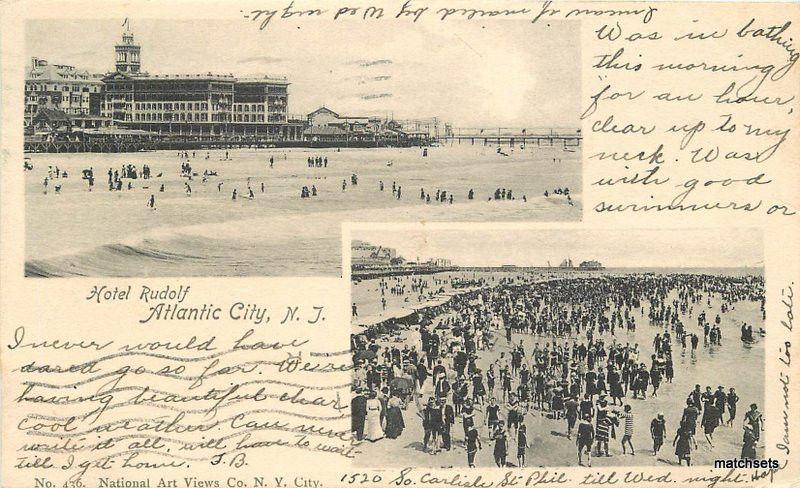 Was in bathing
this morning
for an hour,
clear up to my
neck. Was
with good
swimmers or
I never would have
dared go so far. We're
having beautiful clear
cool weather Can never
write it all, will have to wait
till I get home. J.B.
1520 So. Carlisle St Phil. till Wed. night. Hope
I am not too late.
if mailed by Wed night
Hotel Rudolf
Atlantic City, N. J.
No. 436. National Art Views Co. N. Y. City.
matchsets